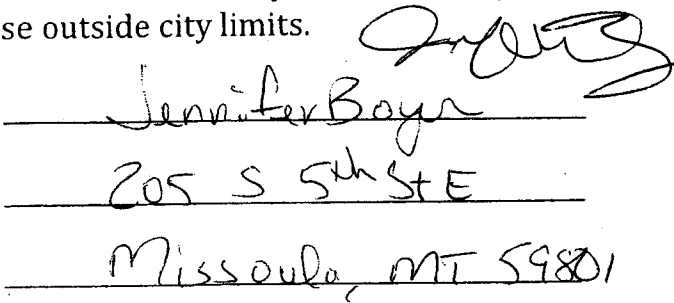 se outside city limits.
Jennifer Boyer
205 S 5th St E
Missoula, MT 59801